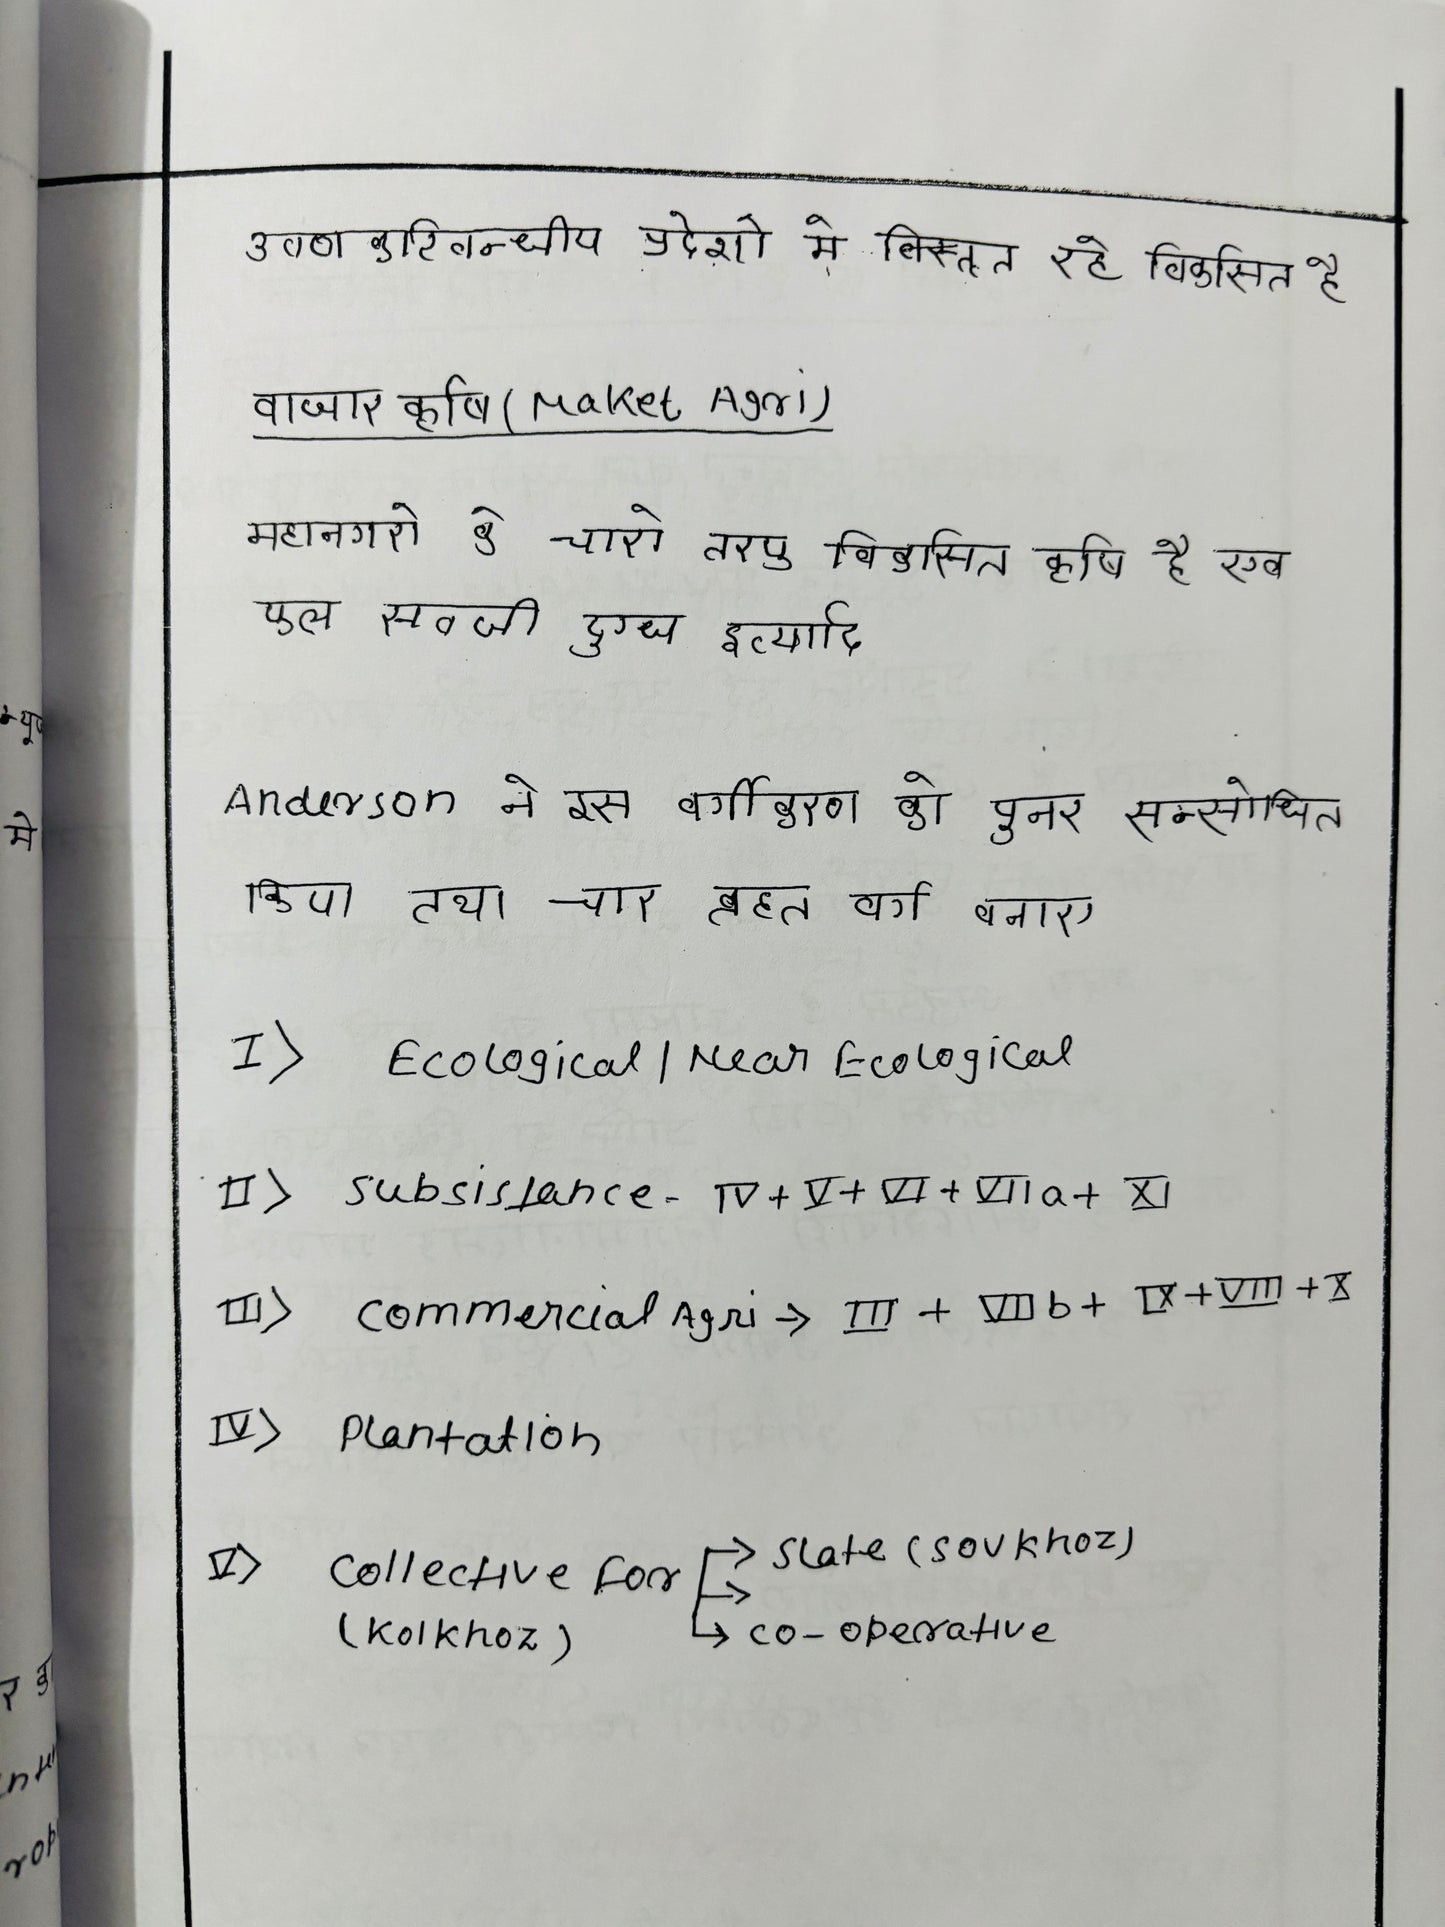 उष्ण कटिबन्धीय प्रदेशो मे विस्तृत रहे विकसित है
बाजार कृषि (Maket Agri)
महानगरो के चारो तरफ विकसित कृषि है एव
फल सब्जी दुग्ध इत्यादि
Anderson ने इस वर्गीकरण को पुनर सन्सोधित
किया तथा चार ब्रहत वर्ग बनाए
I> Ecological / Near Ecological
II> Subsistance - IV + V + VI + VIIa + XI
III> Commercial Agri → III + VIIb + IX + VIII + X
IV> Plantation
V> Collective for → State (Sovkhoz)
→
(Kolkhoz) → co-operative
मे